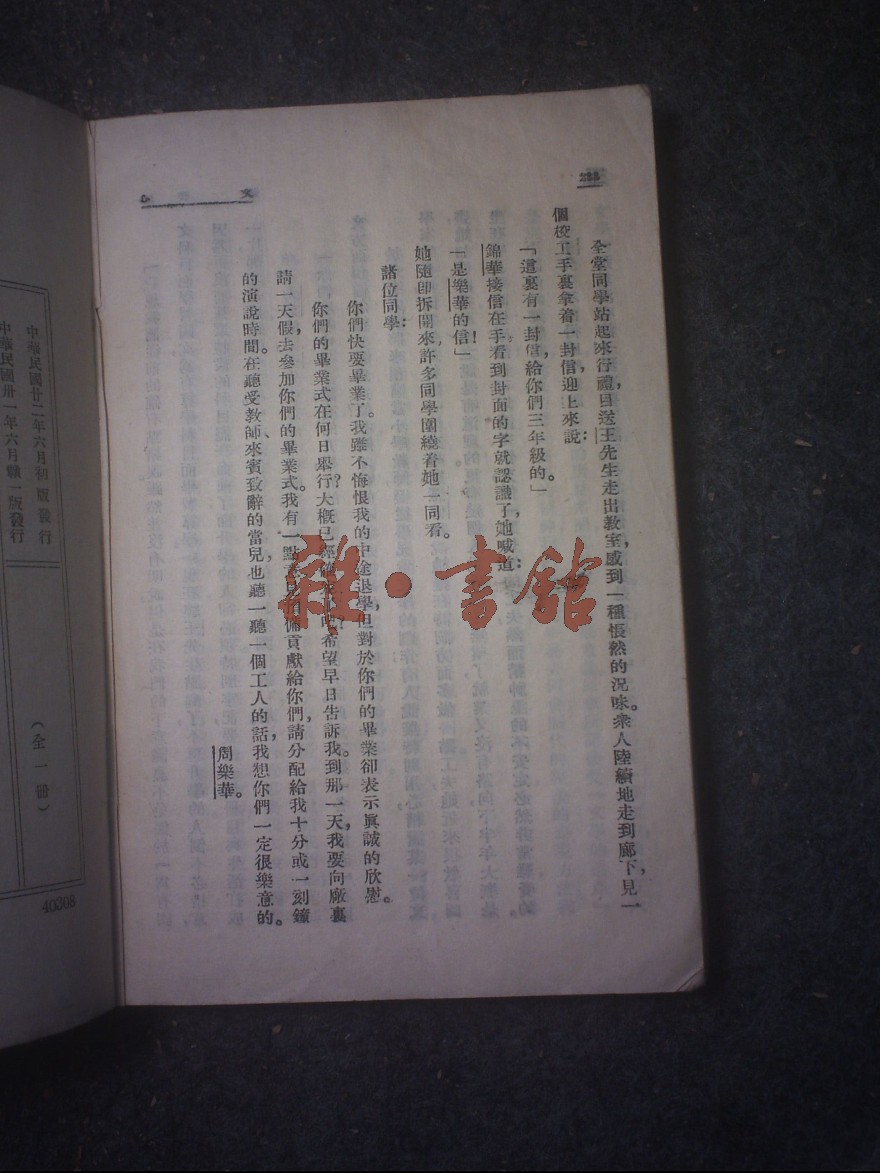 288
文心
全堂同學站起來行禮，目送王先生走出教室，感到一種悵然的況味。衆人陸續地走到廊下，見一
個校工手裏拿着一封信，迎上來說：
「這裏有一封信，給你們三年級的。」
錦華接信在手，看到封面的字就認識了，她喊道：
「是樂華的信！」
她隨即拆開來，許多同學圍繞着她一同看。
諸位同學：
你們快要畢業了。我雖不悔恨我的中途退學，但對於你們的畢業卻表示眞誠的欣慰。
你們的畢業式在何日舉行？大概已經確定了吧？希望早日告訴我。到那一天，我要向廠裏
請一天假，去參加你們的畢業式。我有一點意見預備貢獻給你們，請分配給我十分或一刻鐘
的演說時間。在聽受教師、來賓致辭的當兒，也聽一聽一個工人的話，我想你們一定很樂意的。
周樂華。
雜·書館
中華民國廿二年六月初版發行
中華民國卅一年六月贛一版發行
（全一冊）
40308